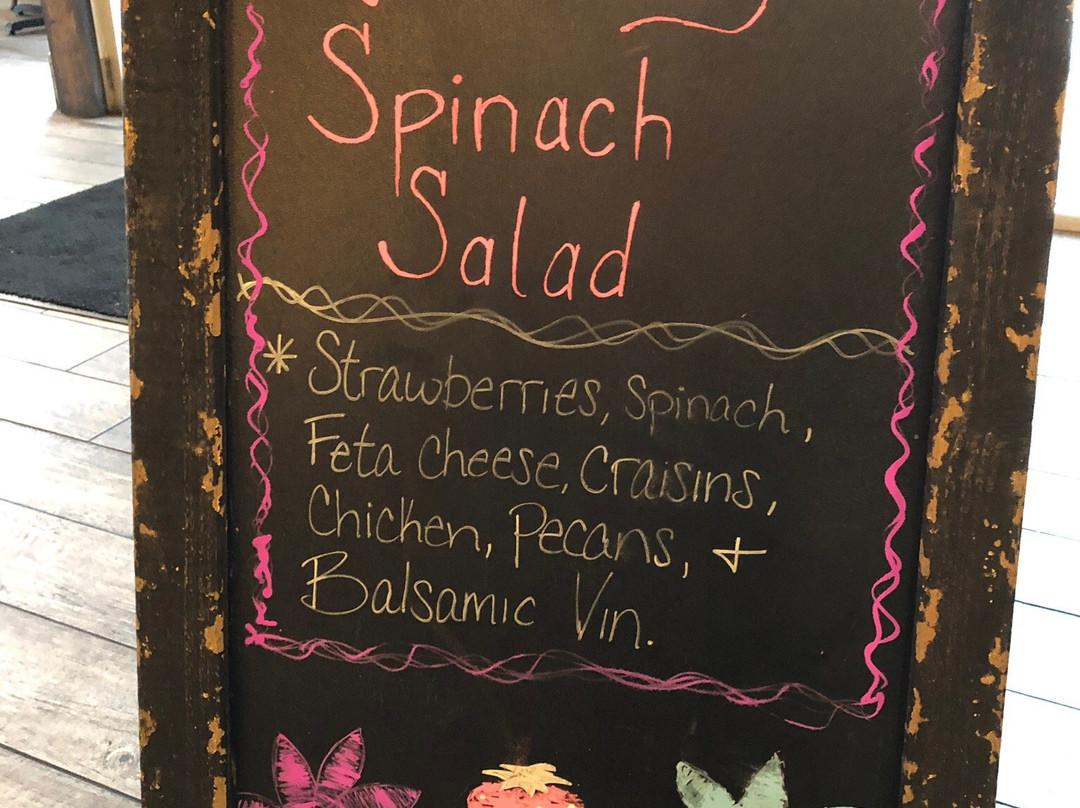 Spinach
Salad
* Strawberries, Spinach,
Feta Cheese, Craisins,
Chicken, Pecans, +
Balsamic Vin.